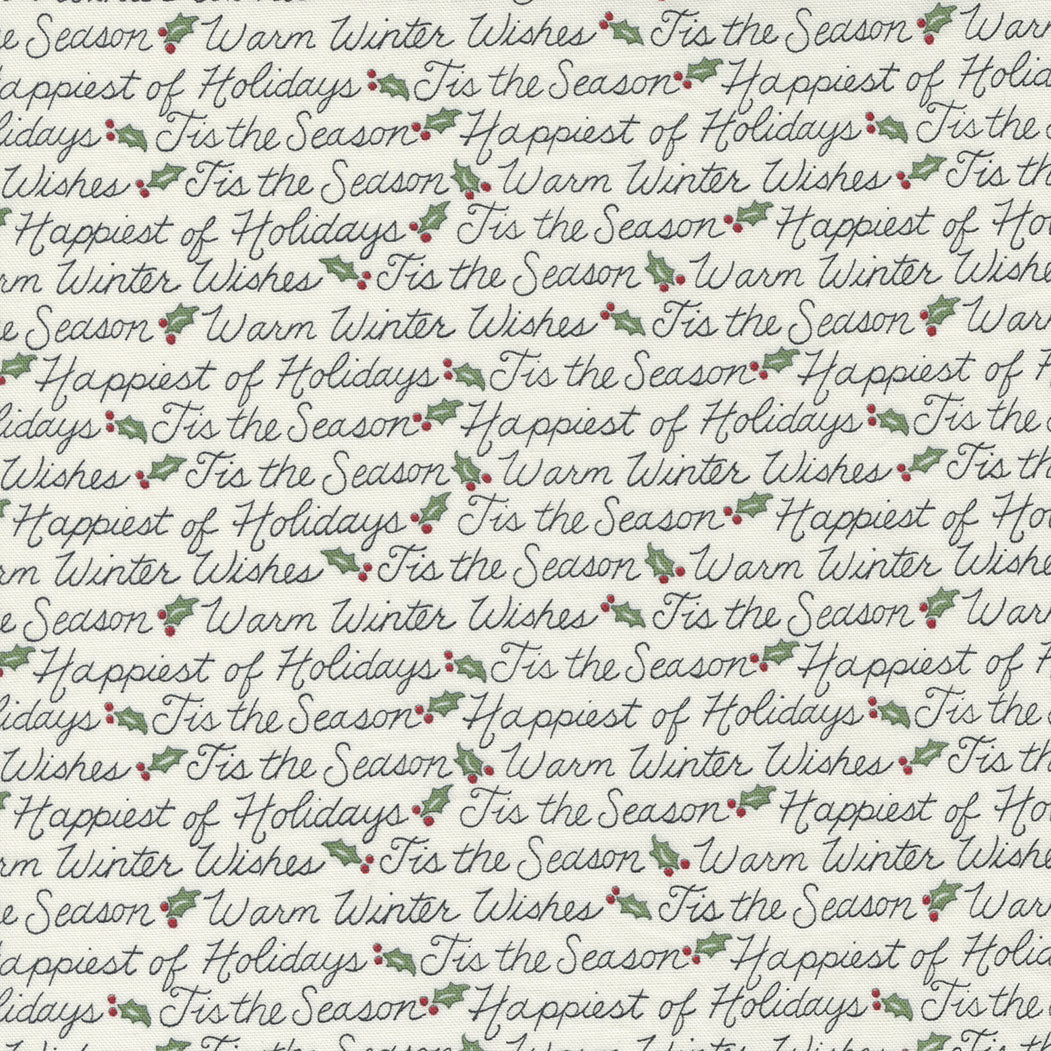 e Season Warm Winter Wishes Tis the Season Warm
appiest of Holidays Tis the Season Happiest of Holid
lidays Tis the Season Happiest of Holidays Tis the S
Wishes Tis the Season Warm Winter Wishes Tis th
Happiest of Holidays Tis the Season Happiest of Ho
rm Winter Wishes Tis the Season Warm Winter Wishe
e Season Warm Winter Wishes Tis the Season War
Happiest of Holidays Tis the Season Happiest of H
lidays Tis the Season Happiest of Holidays Tis the S
Wishes Tis the Season Warm Winter Wishes Tis th
Happiest of Holidays Tis the Season Happiest of Ho
rm Winter Wishes Tis the Season Warm Winter Wishe
e Season Warm Winter Wishes Tis the Season War
Happiest of Holidays Tis the Season Happiest of H
lidays Tis the Season Happiest of Holidays Tis the S
Wishes Tis the Season Warm Winter Wishes Tis th
Happiest of Holidays Tis the Season Happiest of Ho
rm Winter Wishes Tis the Season Warm Winter Wishe
e Season Warm Winter Wishes Tis the Season War
appiest of Holidays Tis the Season Happiest of Holid
lidays Tis the Season Happiest of Holidays Tis the